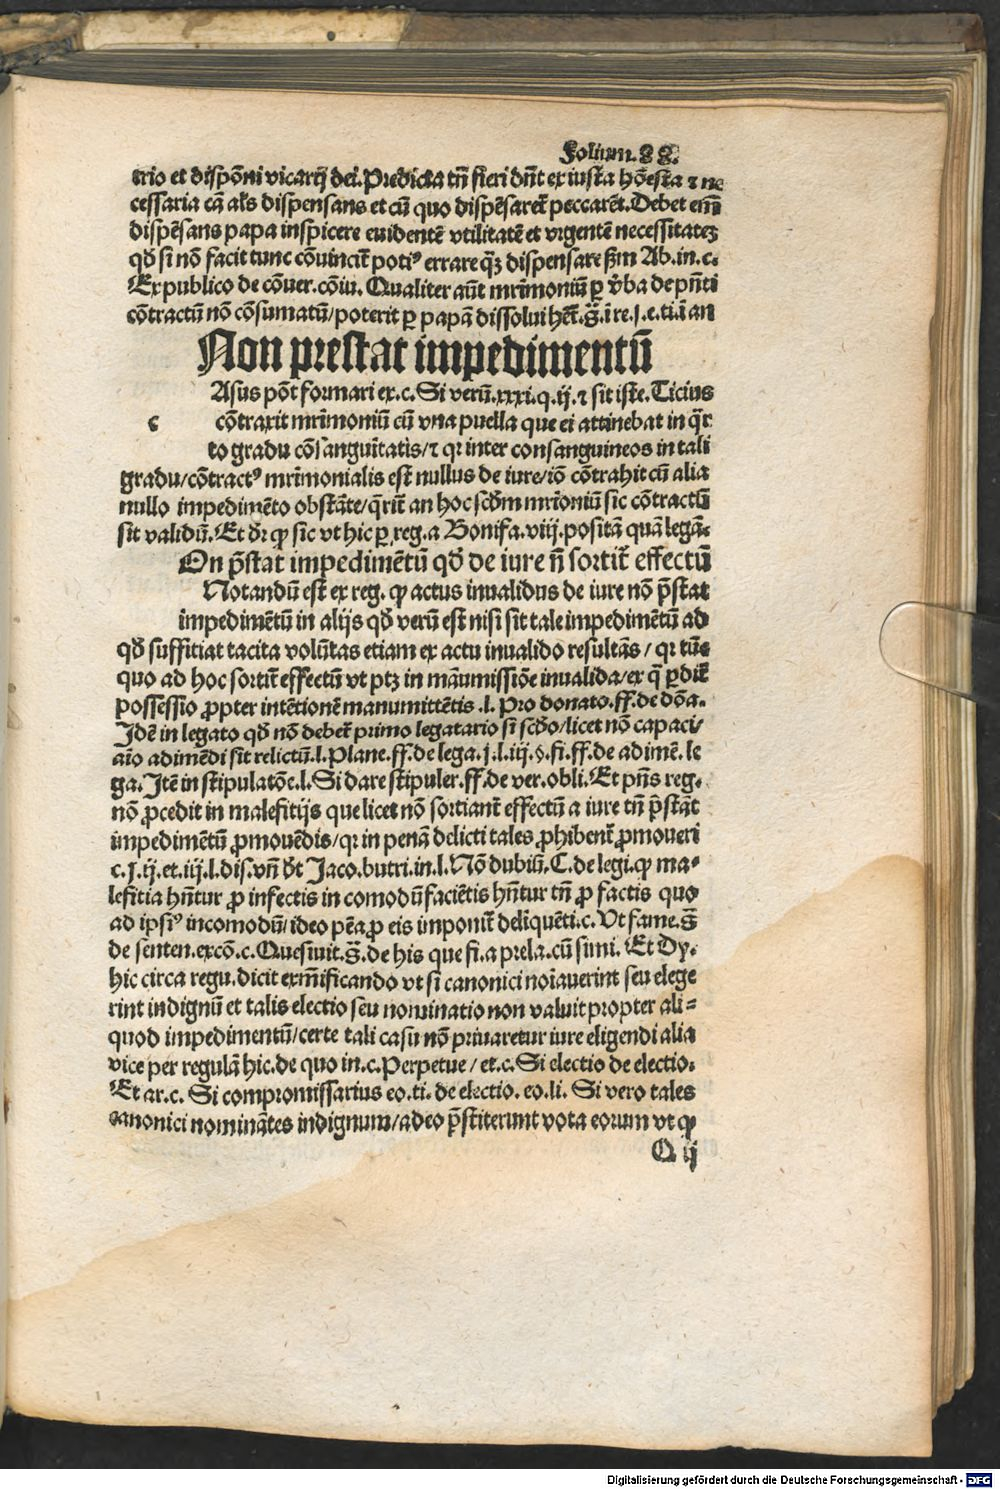 Folium. 88.
trio et dispōni vicarij dei. Predicta tn̄ fieri dn̄t ex iusta hōesta ⁊ ne
cessaria cā al's dispensans et cū quo dispēsaret̄ peccarēt. Debet em̄
dispēsans papa inspicere euidentē vtilitatē et vrgentē necessitatez
qd̄ si nō facit tunc cōuincit̄ poti⁹ errare q̄ꝫ dispensare ẜm Ab. in. c.
Ex publico de cōuer. cōiu. Qualiter aūt mr̄imoniū ꝑ v̄ba de pn̄ti
cōtractū nō cōsumatū/poterit ꝑ papā dissolui het̄. s̄. ī re. j. e. ti. ī an
Non prestat impedimentū
Asus pōt formari ex. c. Si verū. xxxi. q. ij. ⁊ sit iste. Ticius
c cōtraxit mr̄imoniū cū vna puella que ei attinebat in q̄r
to gradu cōsanguītatis/⁊ qr inter consanguineos in tali
gradu/cōtract⁹ mr̄imonialis est nullus de iure/iō cōtrahit cū alia
nullo impedimēto obstāte/q̄rit̄ an hoc scd̄m mr̄ioniū sic cōtractū
sit validū. Et dr̄ ꝙ sic vt hic ꝑ reg. a Bonifa. viij. positā quā legā.
On p̄stat impedimētū qd̄ de iure n̄ sortit̄ effectū
Notandū est ex reg. ꝙ actus inualidus de iure nō p̄stat
impedimētū in alijs qd̄ verū est nisi sit tale impedimētū ad
qd̄ suffitiat tacita volūtas etiam ex actu inualido resultās/ qr tūc
quo ad hoc sortit̄ effectū vt ptꝫ in māumissiōe inualida/ex q̄ ꝑdit̄
possessio ꝓpter intētionē manumittētis .l. Pro donato. ff. de dōa.
Idē in legato qd̄ nō debet̄ primo legatario si scd̄o/licet nō capaci/
aīo adimēdi sit relictū. l. Plane. ff. de lega. j. l. iij. §. fi. ff. de adimē. le
ga. Itē in stipulatōe. l. Si dare stipuler. ff. de ver. obli. Et pn̄s reg.
nō ꝓcedit in malefitijs que licet nō sortiant̄ effectū a iure tn̄ p̄stāt
impedimētū ꝓmouēdis/qr in penā delicti tales ꝓhibent̄ ꝓmoueri
c. j. ij. et. iij. l. dis. vn̄ dt̄ Jaco. butri. in. l. Nō dubiū. C. de legi. ꝙ ma-
lefitia hn̄tur ꝓ infectis in comodū faciētis hn̄tur tn̄ ꝓ factis quo
ad ipsi⁹ incomodū/ideo pēa ꝓ eis imponit̄ delīquēti. c. Vt fame. s̄
de senten. excō. c. Quesiuit. s̄. de his que fi. a prela. cū simi. Et Dy.
hic circa regu. dicit exm̄ificando vt si canonici noīauerint seu elege
rint indignū et talis electio seu nominatio non valuit propter ali=
quod impedimentū/certe tali casu nō priuaretur iure eligendi alia
vice per regulā hic. de quo in. c. Perpetue/ et. c. Si electio de electio.
Et ar. c. Si compromissarius eo. ti. de electio. eo. li. Si vero tales
canonici nomināтes indignum/adeo p̄stiterunt vota eorum vt ꝙ
Q ij
Digitalisierung gefördert durch die Deutsche Forschungsgemeinschaft - DFG